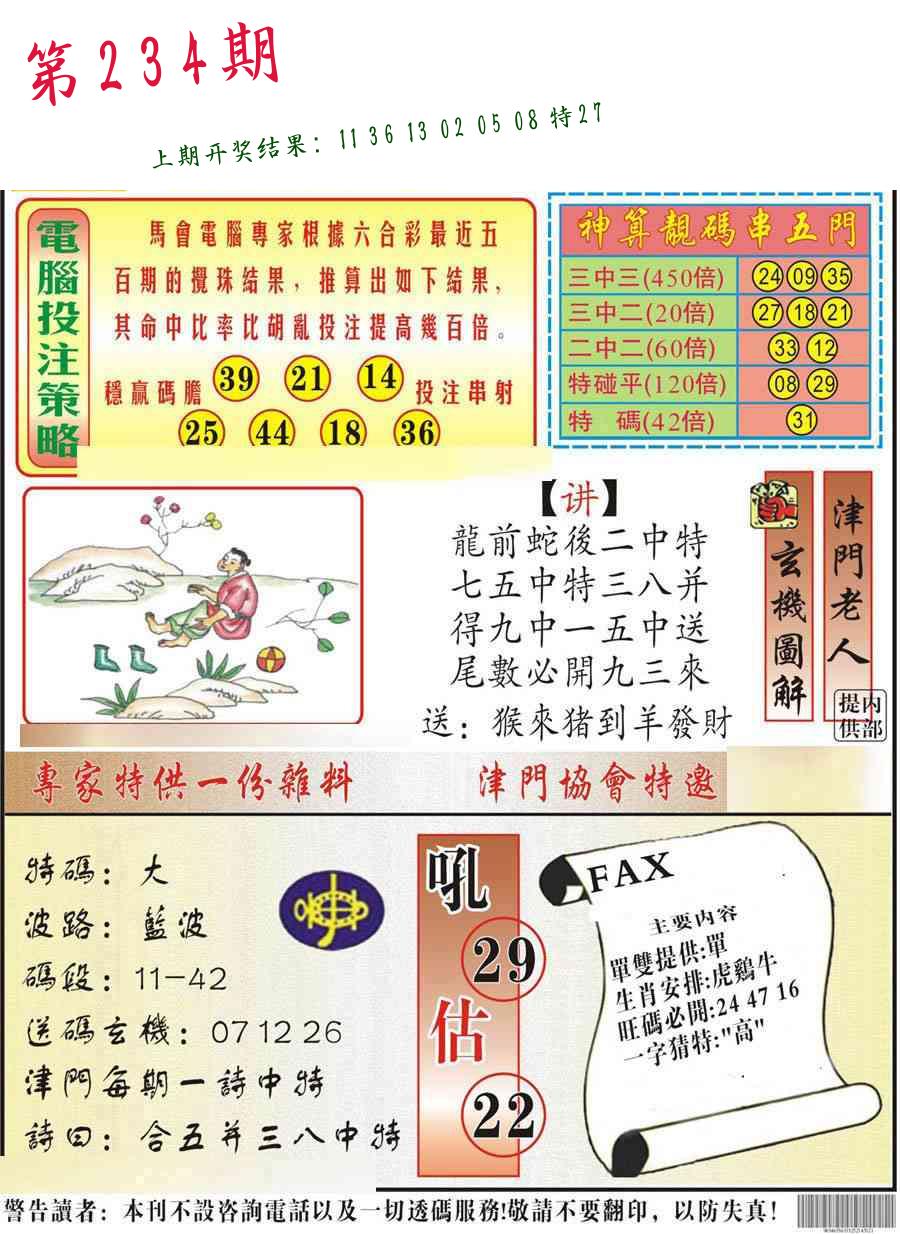 第234期
上期开奖结果：11 36 13 02 05 08 特27
電腦投注策略
馬會電腦專家根據六合彩最近五
百期的攪珠結果，推算出如下結果，
其命中比率比胡亂投注提高幾百倍。
穩贏碼膽 39 21 14 投注串射
25 44 18 36
神算靚碼串五門
三中三(450倍) 24 09 35
三中二(20倍) 27 18 21
二中二(60倍) 33 12
特碰平(120倍) 08 29
特 碼(42倍) 31
【讲】
龍前蛇後二中特
七五中特三八并
得九中一五中送
尾數必開九三來
送：猴來猪到羊發財
玄機圖解
津門老人
内部提供
專家特供一份雜料
津門協會特邀
特碼：大
波路：藍波
碼段：11-42
送碼玄機：07 12 26
津門每期一詩中特
詩曰：合五并三八中特
吼
29
估
22
FAX
主要内容
單雙提供:單
生肖安排:虎鷄牛
旺碼必開:24 47 16
一字猜特:"高"
警告讀者：本刊不設咨詢電話以及一切透碼服務!敬請不要翻印，以防失真!